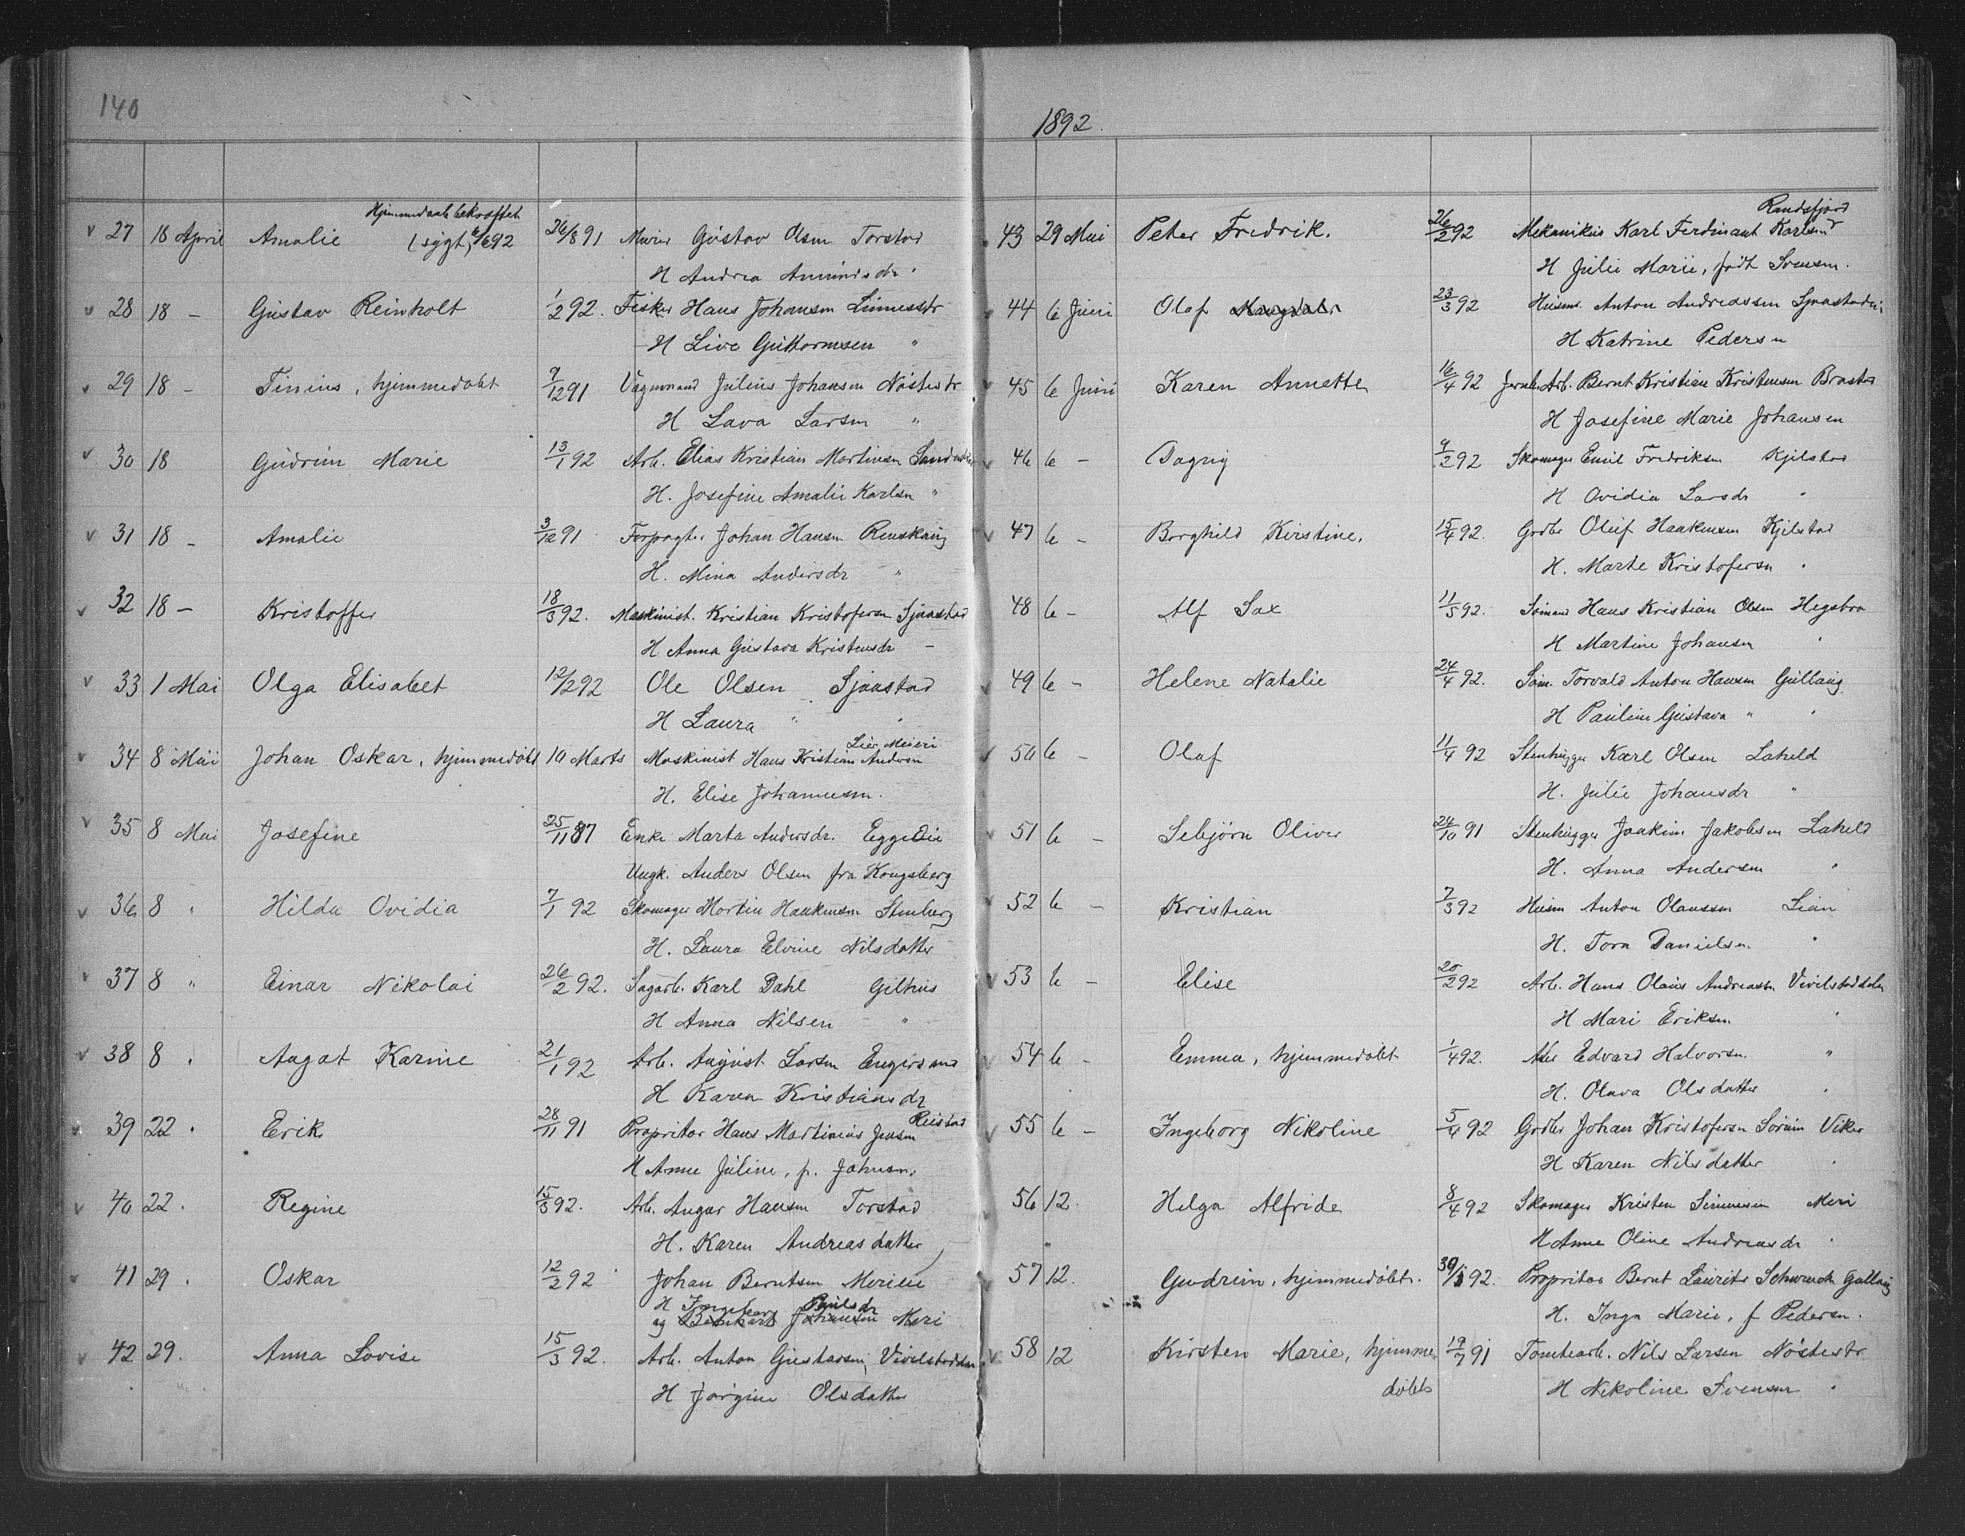 140
Hjemmedaab bekræftet
27 18 April Amalie (sygt, 92 26/8 91 Murer Gustav Olsen Torstad
H Andrea Amundsdr "
28 18 – Gustav Reinholt 1/2 92. Fisker Hans Johansen Linnesstr
H Live Guttormsen "
29 18 – Tinius, hjemmedøbt 9/12 91 Vognmand Julius Johansen Nøstestr
H Lava Larsen "
30 18 Gudrun Marie 13/1 92 Arb. Elias Kristian Martinsen
H. Josefine Amalie Karlsen "
31 18 – Amalie 3/12 91 Forpagter Johan Hansen Renskaug
H. Mina Andersdr "
32 18 – Kristoffer 18/3 92. Maskinist. Kristian Kristofersen Sjaastad
H. Anna Gustava Kristensdr –
33 1 Mai Olga Elisabet 12/2 92 Ole Olsen Sjaastad
H Laura " "
Lier Meieri
34 8 Mai Johan Oskar, hjemmedøbt 10 Marts Maskinist Hans Kristian Andersen
H. Elise Johannesen.
35 8 Mai Josefine 25/11 87 Enke Marta Andersdr. Eggeeie
Ungk. Anders Olsen fra Kongsberg
36 8 " Hilda Ovidia 7/1 92 Skomager Martin Haakensen Stenberg
H. Laura Elvine Nilsdatter
37 8 " Einar Nikolai 26/2 92. Sagarb. Karl Dahl Gilhus
H Anna Nilsen "
38 8 " Aagot Karine 21/1 92 Arb. August Larsen Engersand
H Karen Kristiansdr
39 22 " Erik 28/11 91 Propritær Hans Martinius Jensen Reistad
H Anne Juline, f. Johnsen.
40 22. Regine 15/3 92. Arb. Ansgar Hansen Torstad
H. Karen Andreasdatter
41 29. Oskar 12/2 92 Johan Berntsen Merieie
H Ingeborg Paulsdr
og Bernhard Johansen Meri
42 29. Anna Lovise 15/3 92. Arb. Anton Gustavsen, Vivelstadsten
H Jørgine Olsdatter
1892.
Randsfjord
43 29 Mai Peter Fredrik. 26/2 92 Mekanikus Karl Ferdinant Karlsen
H Julie Marie, født Svensen.
44 6 Juni Olaf 23/3 92 Husm. Anton Andreassen Sjaastadei
H Katrine Pedersen
45 6 Juni Karen Annette 16/4 92 Jernb. Arb. Bernt Kristian Kristensen Brastad
H Josefine Marie Johansen
46 6 – Dagny 9/2 92 Skomager Emil Fredriksen Kjelstad
H Ovidia Larsdr "
47 6 – Borghild Kirstine. 15/4 92. Grdbr Oluf Haakensen Kjelstad
H. Marte Kristofersen "
48 6 – Alf Sax 11/3 92. Sømand Hans Kristian Olsen Hegsbro
H Martine Johansen "
49 6 – Helene Natalie 24/4 92. Søm. Torvald Anton Hansen Gullaug
H Pauline Gustava " "
50 6 – Olaf 11/4 92 Stenhugger Karl Olsen Laheld
H. Julie Johansdr "
51 6 – Sebjørn Oliver 24/10 91 Stenhugger Joakim Jakobsen Laheld
H. Anna Andersen "
52 6 – Kristian 7/3 92 Husm Anton Olaussen Lian
H. Tora Danielsen "
53 6 – Elise 20/2 92 Arb. Hans Olaus Andreassen Vivelstadsten
H Mari Eriksen "
54 6 – Emma, hjemmedøbt 1/4 92. Arb Edvard Halvorsen "
H. Olava Olsdatter "
55 6 – Ingeborg Nikoline 5/4 92 Grdbr Johan Kristofersen Sørum Viker
H Karen Nilsdatter "
56 12. Helga Alfride 8/4 92 Skomager Kristen Simensen Meri
H Anne Oline Andreasdr "
57 12. Gudrun, hjemmedøbt. 30/1 92. Propritær Bernt Laurits Schwenck Gullaug
H. Inga Marie, f Pedersen.
58 12 Kirsten Marie, hjemme 19/7 91 Tomtearb. Nils Larsen Nøstestr
døbt H Nikoline Svensen "